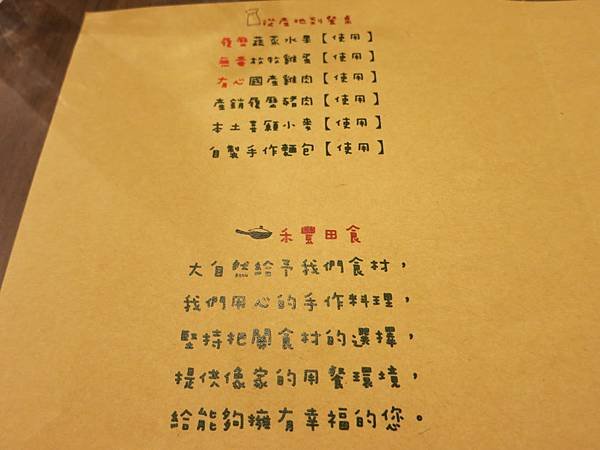 從產地到餐桌
履歷蔬菜水果【使用】
無毒放牧雞蛋【使用】
有心國產雞肉【使用】
產銷履歷豬肉【使用】
本土喜願小麥【使用】
自製手作麵包【使用】
禾豐田食
大自然給予我們食材，
我們用心的手作料理，
堅持把關食材的選擇，
提供像家的用餐環境，
給能夠擁有幸福的您。